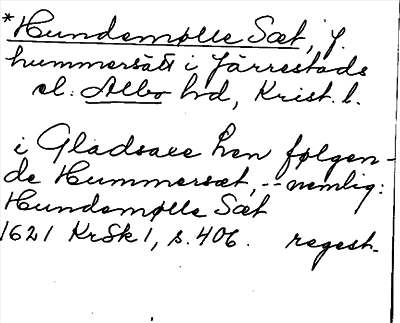 *Hundemølle Sæt, j.
hummersätt i Järrestads
el: Albo hrd, Krist. l.
i Gladsaxe Len følgen-
de Hummersæt, -- nemlig:
Hundemølle Sæt
1621 KrSk 1, s. 406. regest.